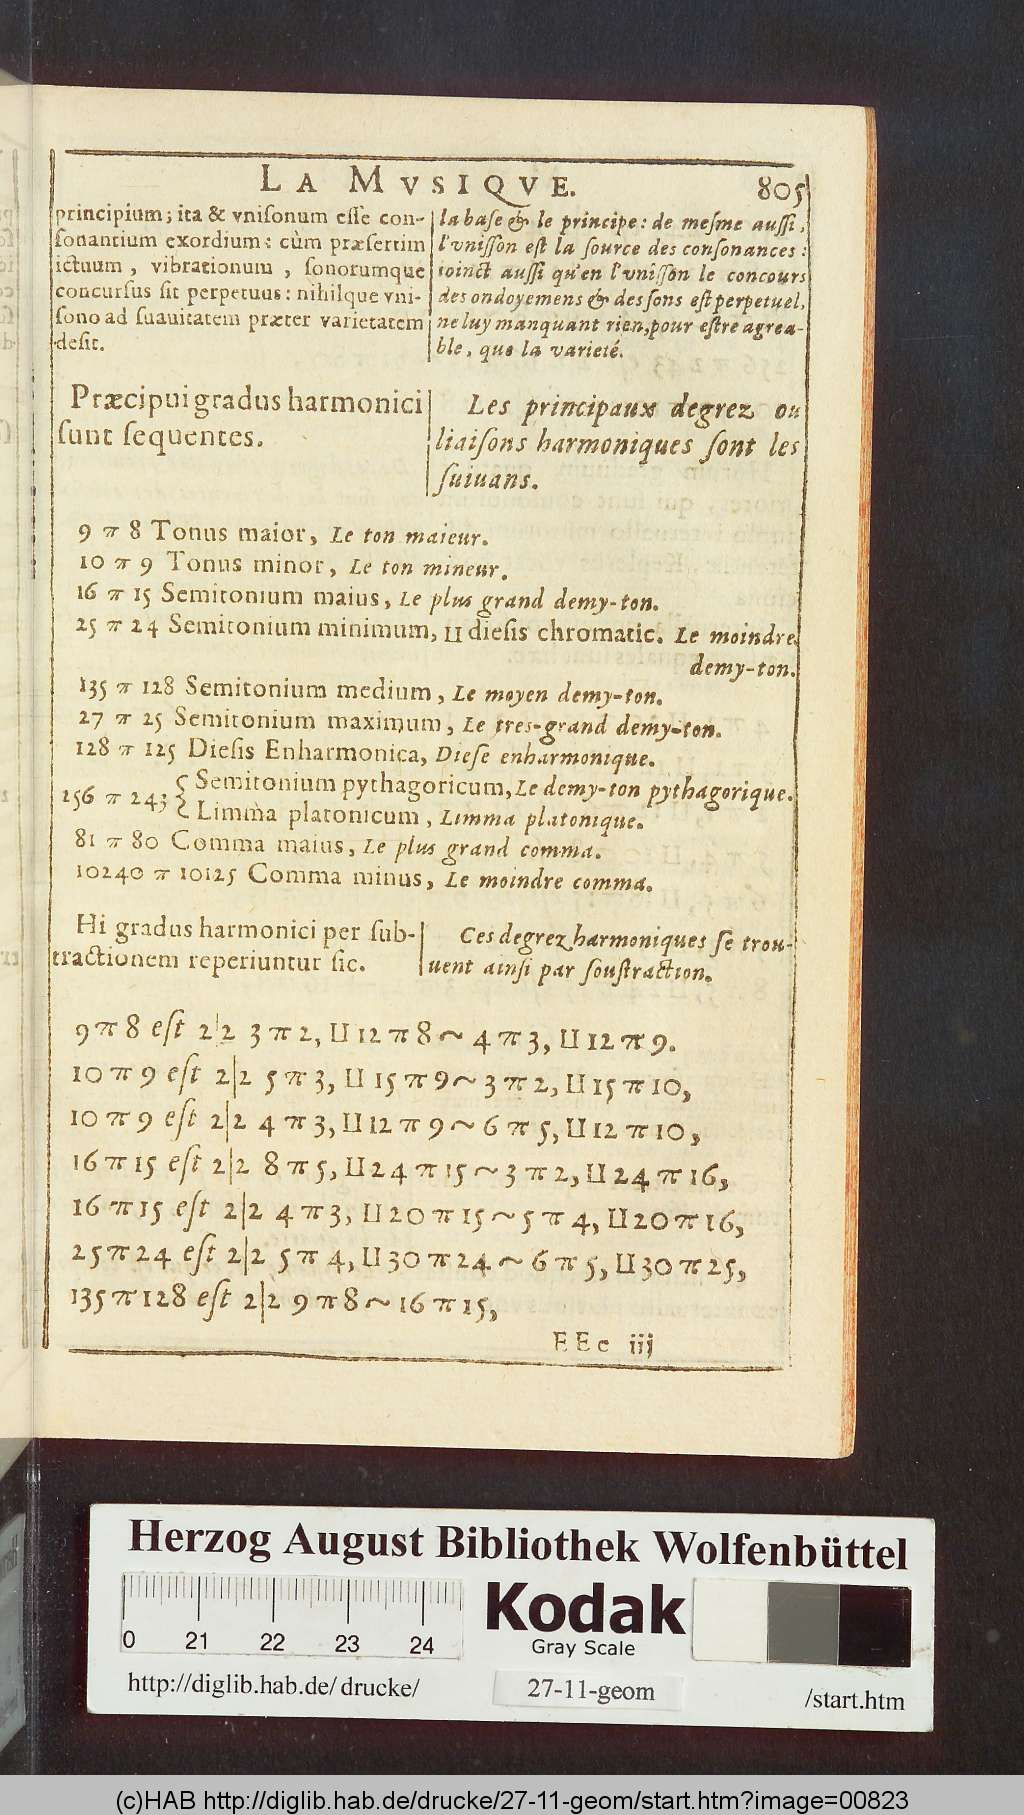 LA MVSIQVE. 805
principium; ita & vnisonum esse con-
sonantium exordium: cùm præsertim
ictuum, vibrationum, sonorumque
concursus sit perpetuus: nihilque vni-
sono ad suauitatem præter varietatem
desit.
la base & le principe: de mesme aussi,
l'vnisson est la source des consonances:
ioinct aussi qu'en l'vnisson le concours
des ondoyemens & des sons est perpetuel,
ne luy manquant rien, pour estre agrea-
ble, que la varieté.
Præcipui gradus harmonici
sunt sequentes.
Les principaux degrez ou
liaisons harmoniques sont les
suiuans.
9 π 8 Tonus maior, Le ton maieur.
10 π 9 Tonus minor, Le ton mineur.
16 π 15 Semitonium maius, Le plus grand demy-ton.
25 π 24 Semitonium minimum, ⊔ diesis chromatic. Le moindre
demy-ton.
135 π 128 Semitonium medium, Le moyen demy-ton.
27 π 25 Semitonium maximum, Le tres-grand demy-ton.
128 π 125 Diesis Enharmonica, Diese enharmonique.
256 π 243 { Semitonium pythagoricum, Le demy-ton pythagorique.
Limma platonicum, Limma platonique.
81 π 80 Comma maius, Le plus grand comma.
10240 π 10125 Comma minus, Le moindre comma.
Hi gradus harmonici per sub-
tractionem reperiuntur sic.
Ces degrez harmoniques se trou-
uent ainsi par soustraction.
9 π 8 est 2|2 3 π 2, ⊔ 12 π 8 ~ 4 π 3, ⊔ 12 π 9.
10 π 9 est 2|2 5 π 3, ⊔ 15 π 9 ~ 3 π 2, ⊔ 15 π 10,
10 π 9 est 2|2 4 π 3, ⊔ 12 π 9 ~ 6 π 5, ⊔ 12 π 10,
16 π 15 est 2|2 8 π 5, ⊔ 24 π 15 ~ 3 π 2, ⊔ 24 π 16,
16 π 15 est 2|2 4 π 3, ⊔ 20 π 15 ~ 5 π 4, ⊔ 20 π 16,
25 π 24 est 2|2 5 π 4, ⊔ 30 π 24 ~ 6 π 5, ⊔ 30 π 25,
135 π 128 est 2|2 9 π 8 ~ 16 π 15,
EEe iij
Herzog August Bibliothek Wolfenbüttel
0 21 22 23 24
Kodak
Gray Scale
http://diglib.hab.de/drucke/ 27-11-geom /start.htm
(c)HAB http://diglib.hab.de/drucke/27-11-geom/start.htm?image=00823